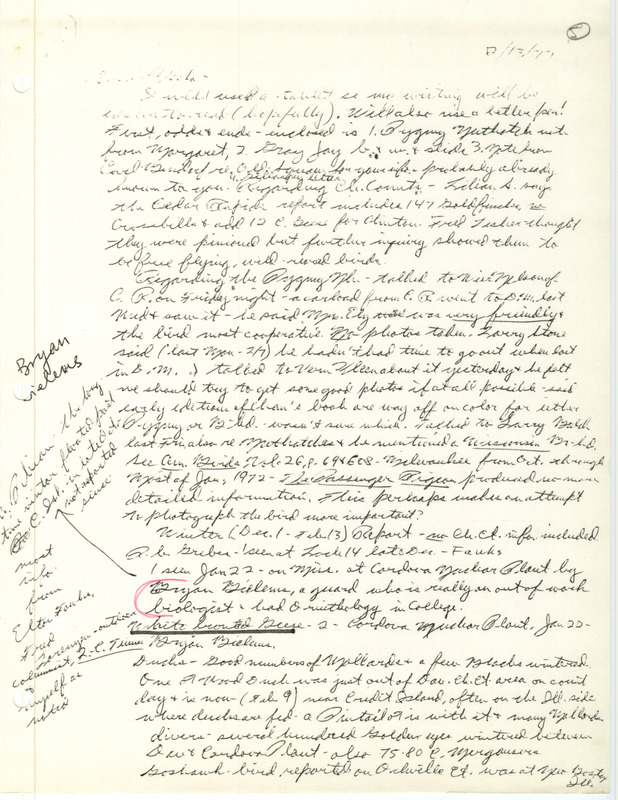 5
2/13/77
I will use a tablet so my writing will be
(hopefully). Will also use a better pen!
First, odds & ends - inclosed is 1. Pygmy Nuthatch
from Margaret, 2. Gray Jay & slide 3. Note from
Carl Bendorf re for your info - probably already
known to you. Regarding Ch. Counts - Lilian S. says
the Cedar Rapids report includes 147 Goldfinches, no
Crossbills & add 12 C. Geese for Clinton. Fred Lesher thought
they were pinioned but further inquiry showed them to
be free flying, wild-raised birds.
Regarding the Pygmy Nh. - talked to
C.R. on Friday night - a carload from C.R. went to D.M. last
Wed & saw it - he said Mrs. Ely was very friendly &
the bird most cooperative. No photos taken. Larry Stone
said (last Mon - 2/7) he hadn't had time to go out when last
in D.M. I talked to Vern about it yesterday & he felt
we should try to get some good photos if at all possible - said
early editions of book are way off on color for either
Pygmy or B. hd. - wasn't sure which. Talked to Larry
last Fri also re Nuthatches & he mentioned a Wisconsin Br-hd.
See Am. Birds Vol. 26, p. 69 & 608 - Milwaukee from Oct. through
Most of Jan, 1972 - The Passenger Pigeon produced no more
detailed information. This perhaps makes an attempt
to photograph the bird more important?
Winter (Dec. 1 - Feb 13) Report - no Ch. Ct. info. included
P. b. Grebe - 1 seen at Lock 14 late Dec - Fawks
1 seen Jan 22 - on Miss. at Cordova Nuclear Plant by
Bryan Bielems, a guard who is really an out of work
biologist & had Ornithology in College.
White fronted Geese - 2 - Cordova Nuclear Plant, Jan 22 -
Bryan Bielems.
Ducks - Good numbers of Mallards & a few Blacks wintered.
One Wood Duck was just out of Dav. Ch. Ct area on count
day & is now (Feb 9) near Credit Island, often on the Ill. side
where ducks are fed - a Pintail is with it & many Mallards
divers - several hundred Golden eyes wintered between
Dav & Cordova Plant - also 75-80 C. Mergansers
Goshawk - bird reported on Ch. Ct. was at New Boston
Ill.
Bryan
Bielems
Pelican - the long
time visitor floated past
C. Isl. in late
not reported
since
most
info
from
Elton Fawks,
Fred
Lorenzen - outdoor
columnist, Q-C. Times
Myself as
noted